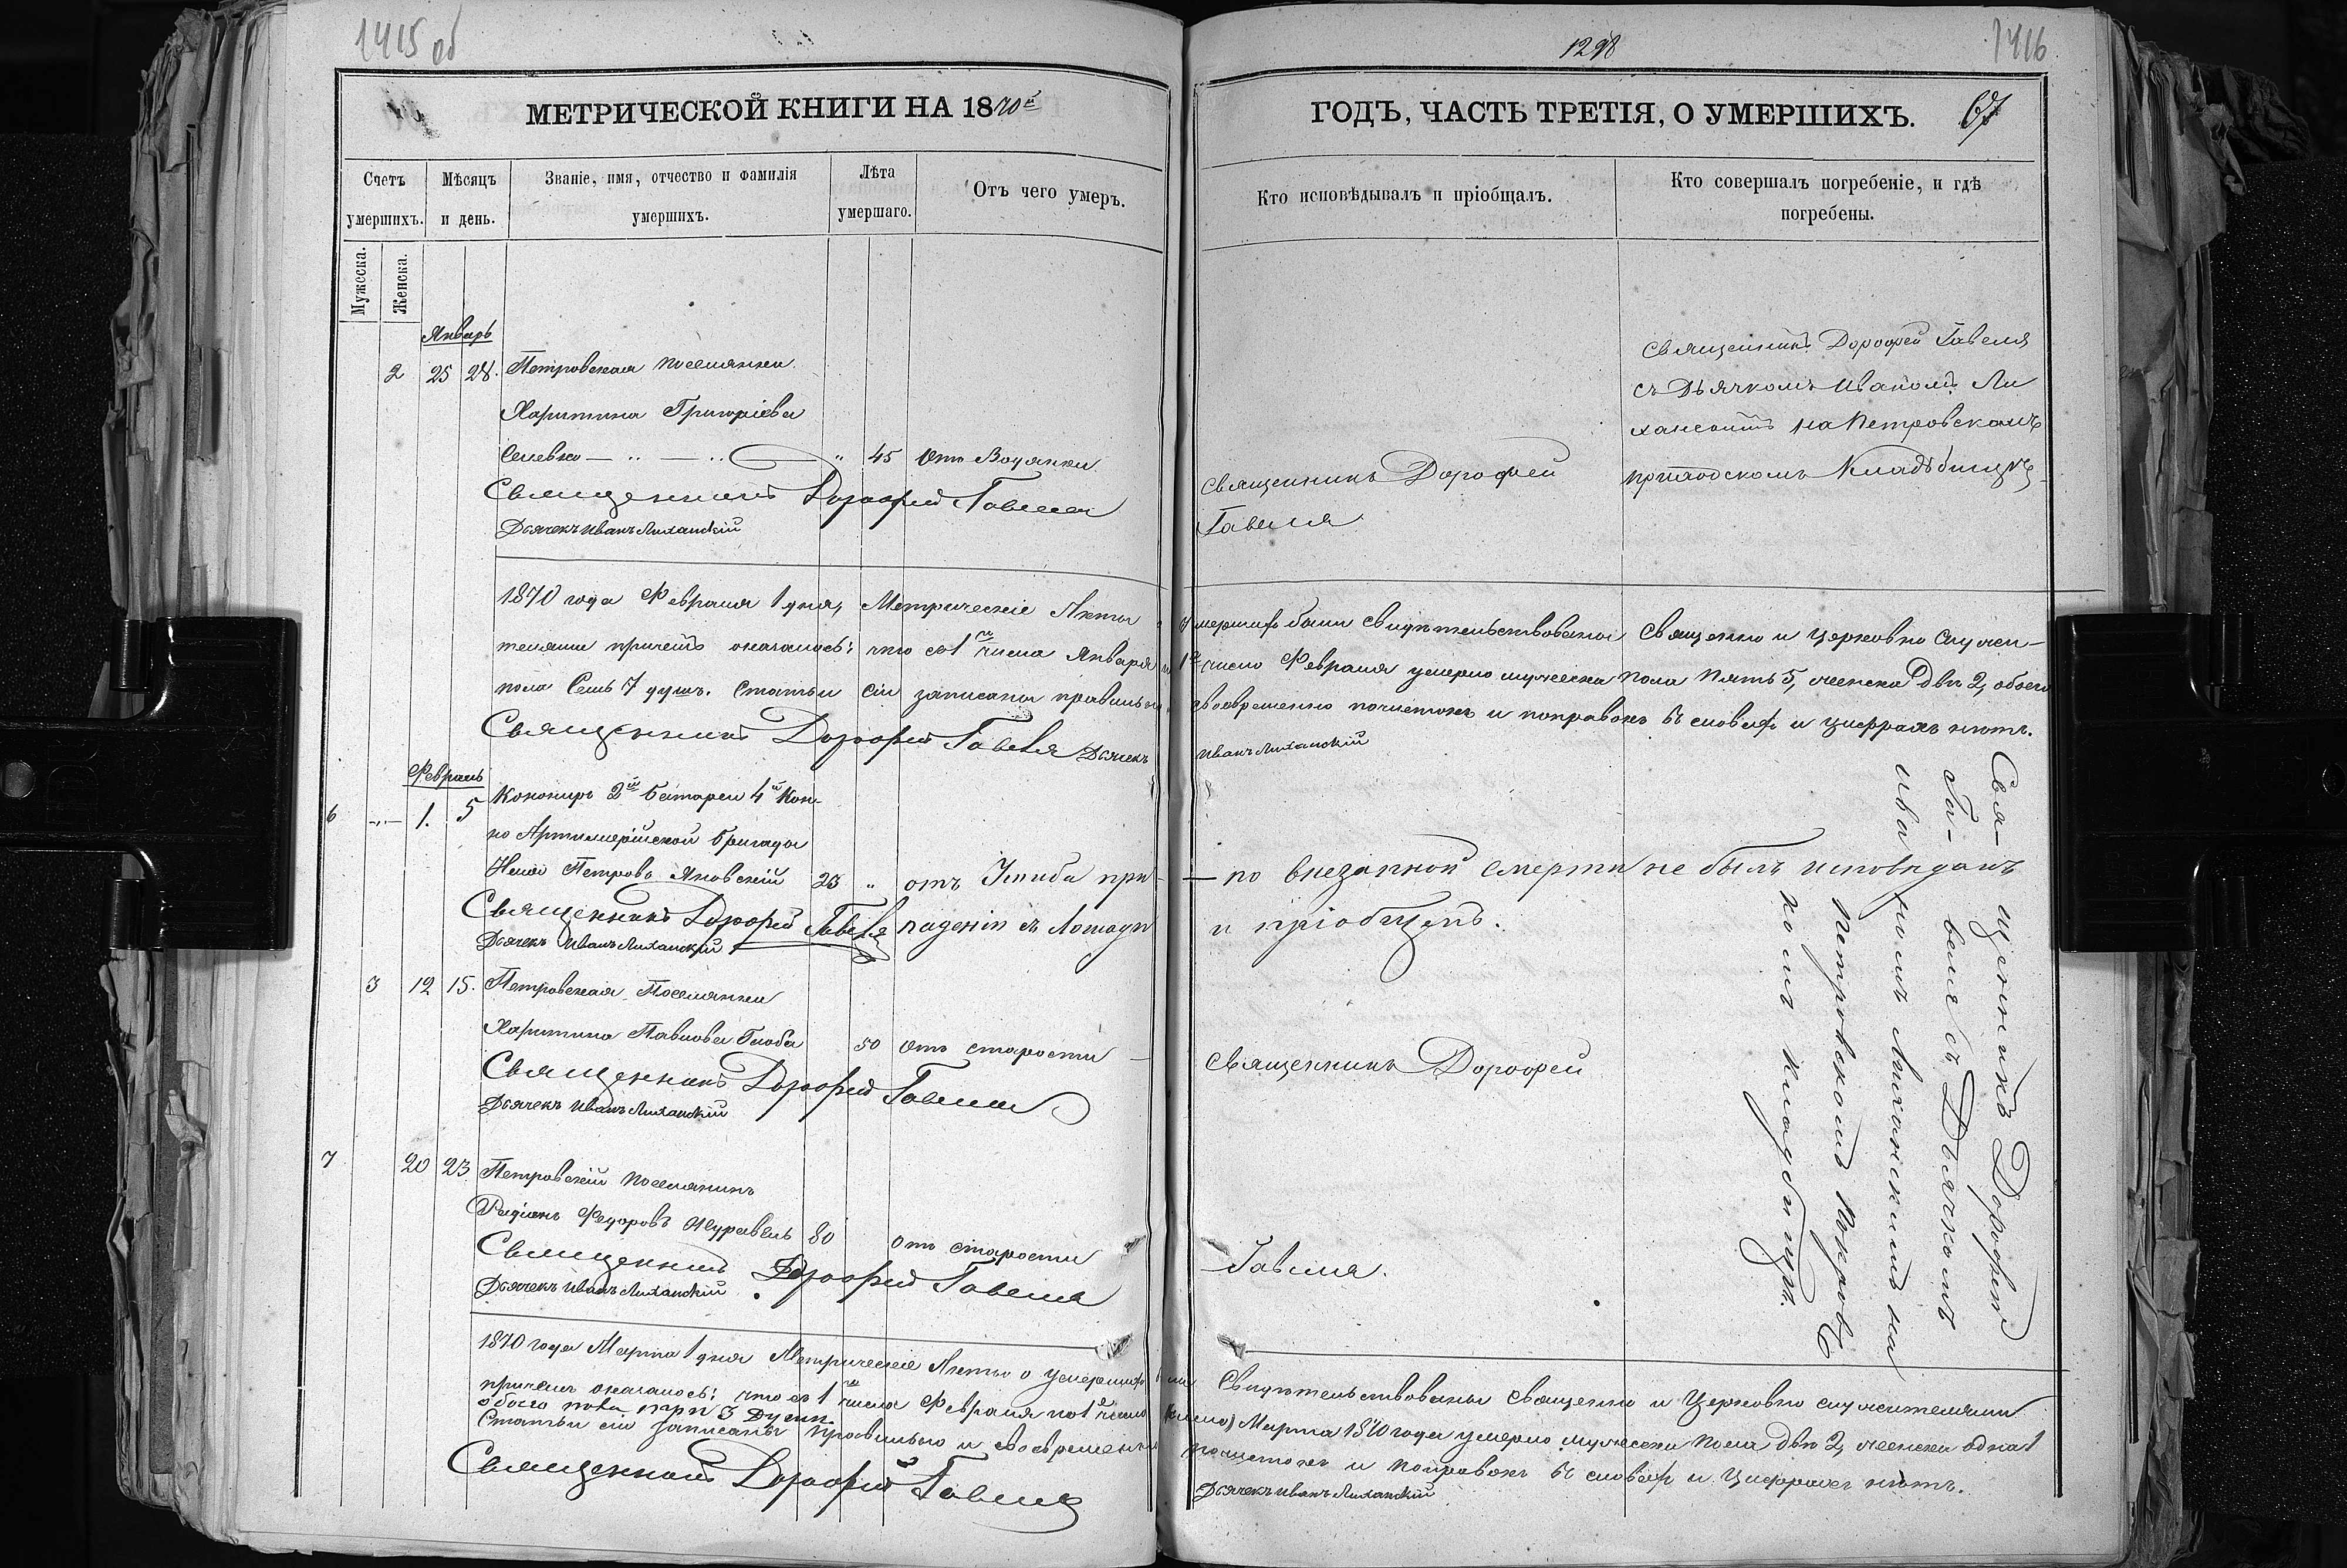 1415 об
МЕТРИЧЕСКОЙ КНИГИ НА 1870й
Счетъ умершихъ.
Мѣсяцъ и день.
Званіе, имя, отчество и фамилія умершихъ.
Лѣта умершаго.
Отъ чего умеръ.
Мужеска.
Женска.
Январь
2 25 28. Петровская поселянка
Харитина Григоріева
45 отъ Водянки
Священникъ Дорофей Гавеля
Дьячекъ Иванъ Лиханскій
1870 года Февраля 1 дня, Метрическіе Акты
телями причетъ оказалось: что съ 1го числа Января по
пола Семь 7 душъ. Статьи сіи записаны правильно
Священникъ Дорофей Гавеля Дьячекъ
Февраль
6 1. 5 Конониръ 2й батареи 4й Кон-
но Артиллерійской бригады
Петровъ Яновскій 23 " отъ Ушиба при
Священникъ Дорофей Гавеля паденіи съ Лошади
Дьячекъ Иванъ Лиханскій
3 12 15. Петровская Поселянка
Харитина Павлова 50 отъ старости
Священникъ Дорофей Гавеля
Дьячекъ Иванъ Лиханскій
7 20 23 Петровскій поселянинъ
Радіонъ Федоровъ Журавель 80 отъ старости
Священникъ Дорофей Гавеля
Дьячекъ Иванъ Лиханскій
1870 года Марта 1 дня Метрическіе Акты о умершихъ
причемъ оказалось: что съ 1го числа Февраля по 1е число
обоего пола три 3 Души
Статьи сіи записаны правильно и своевременно
Священникъ Дорофей Гавеля
1298
1416
ГОДЪ, ЧАСТЬ ТРЕТІЯ, О УМЕРШИХЪ. 67
Кто исповѣдывалъ и пріобщалъ.
Кто совершалъ погребеніе, и гдѣ погребены.
Священникъ Дорофей
Гавеля
Священникъ Дорофей Гавеля
съ Дьячкомъ Иваномъ Ли
ханскимъ на Петровскомъ
приходскомъ Кладбищѣ
умершихъ были свидѣтельствованы Священно и церковно служи-
1е число Февраля умерло мужеска пола пять 5, женска двѣ 2, обоего
своевременно почистокъ и поправокъ въ словахъ и цифрахъ нѣтъ.
Иванъ Лиханскій
по внезапной смерти не былъ исповѣданъ
и пріобщенъ.
Священникъ Дорофей
Гавеля.
Священникъ Дорофей
Гавеля съ Дьячкомъ
Иваномъ Лиханскимъ на
Петровскомъ Покров
комъ кладбищѣ.
Свидѣтельствованы Священно и Церковно служителями
Марта 1870 года умерло мужеска пола двѣ 2, женска одна 1
почистокъ и поправокъ въ словахъ и цифрахъ нѣтъ.
Дьячекъ Иванъ Лиханскій